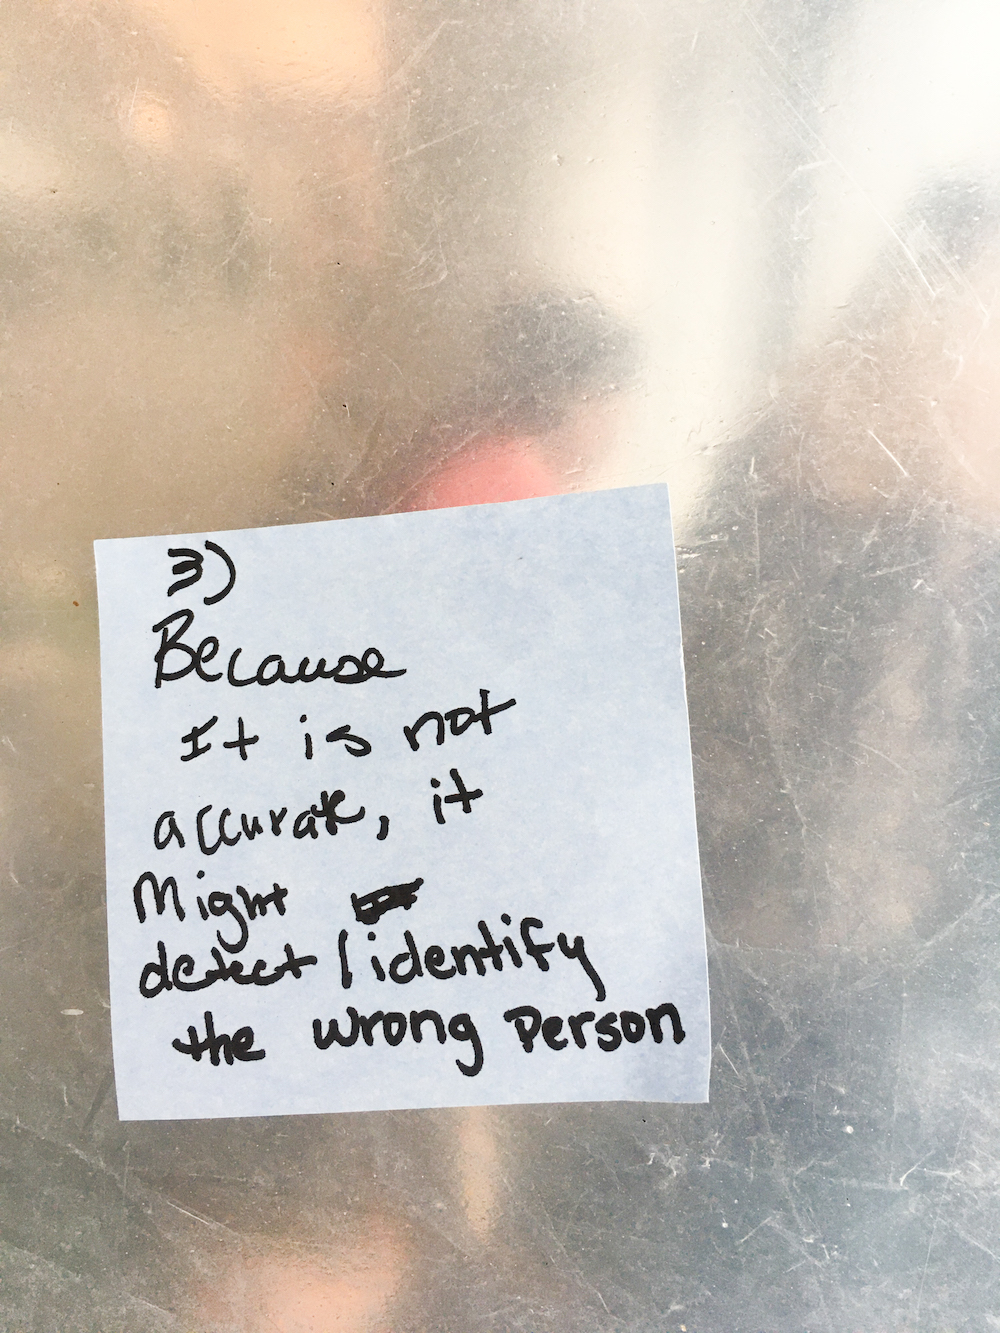 3)
Because
It is not
accurate, it
Might
detect/identify
the wrong Person